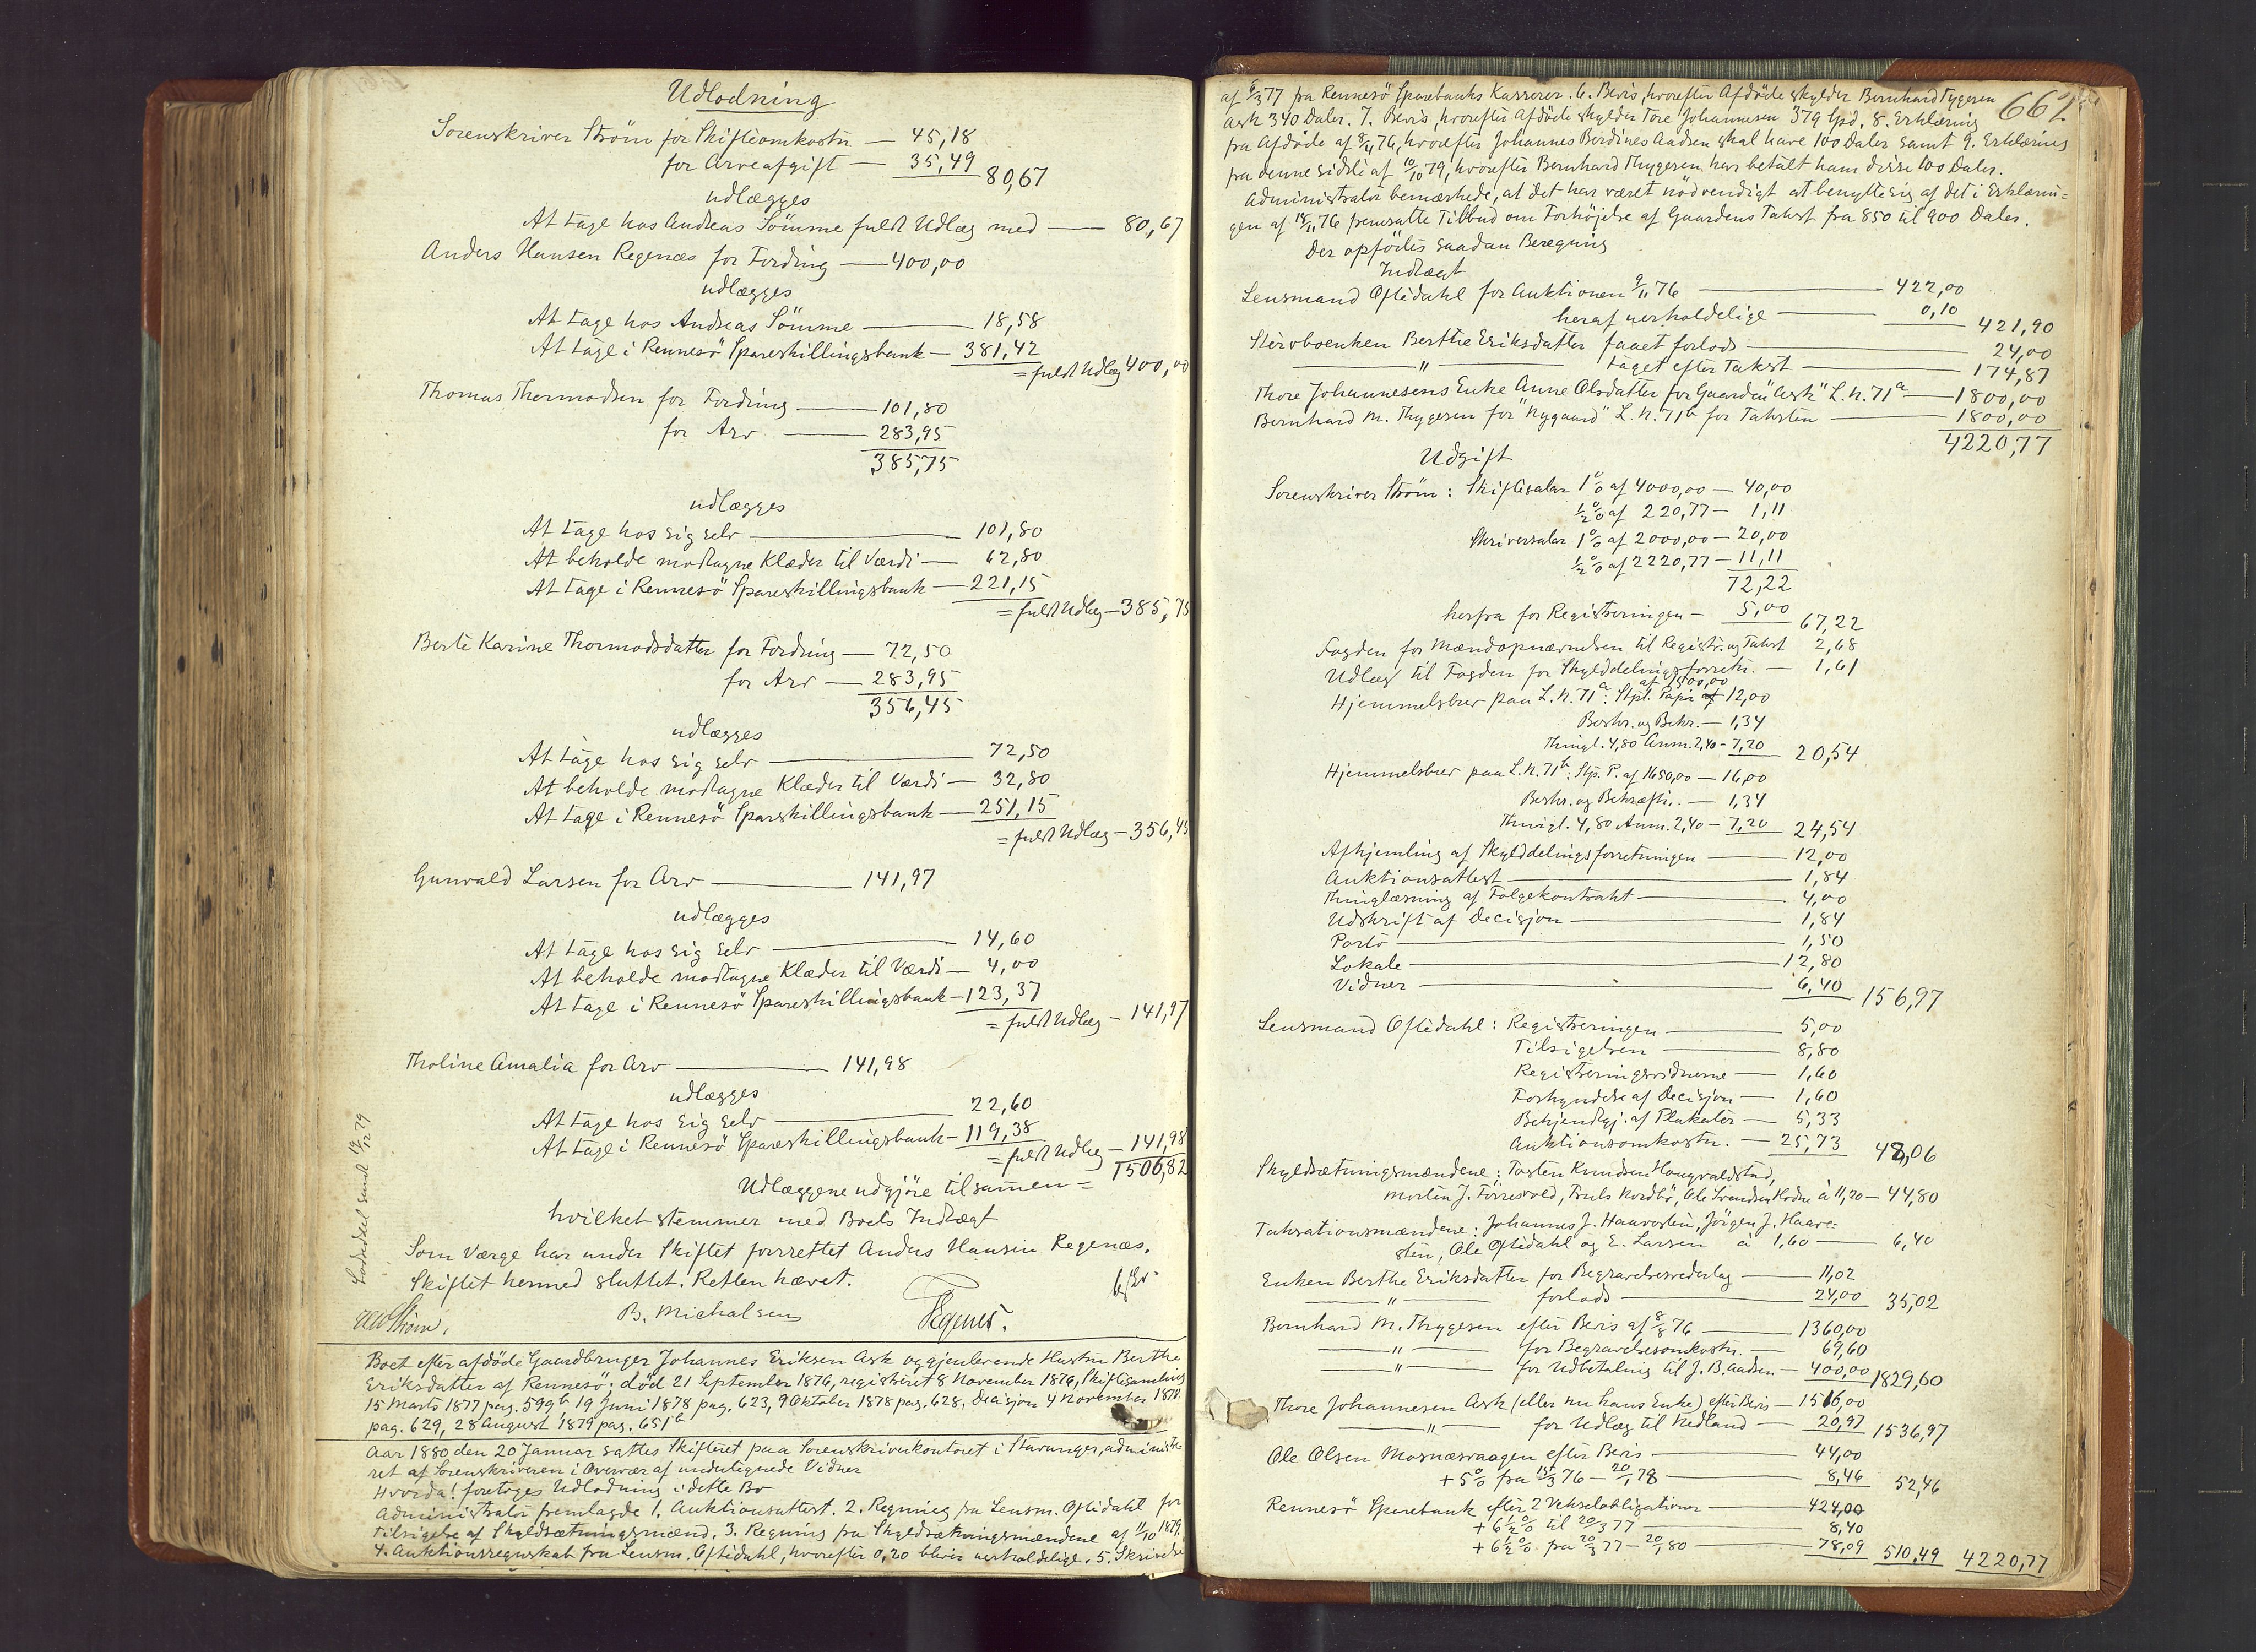 Udlodning
Sorenskriver Strøm for Skifteomkostn. — 45,18
for Arveafgift — 35,49 80,67
udlægges
At tage hos Andreas Sömme fuldt Udlæg med — 80,67
Anders Hansen Regenæs for Fordring — 400,00
udlægges
At tage hos Andreas Sömme — 18,58
At tage i Rennesö Spareskillingsbank — 381,42
= fuldt Udlæg 400,00
Thomas Thormodsen for Fordring — 101,80
for Arv — 283,95
385,75
udlægges
At tage hos sig selv — 101,80
At beholde modtagne Klæder til Værdi — 62,80
At tage i Rennesö Spareskillingsbank — 221,15
= fuldt Udlæg — 385,75
Berte Karine Thormodsdatter for Fordring — 72,50
for Arv — 283,95
356,45
udlægges
At tage hos sig selv — 72,50
At beholde modtagne Klæder til Værdi — 32,80
At tage i Rennesö Spareskillingsbank — 251,15
= fuldt Udlæg — 356,45
Gunvald Larsen for Arv — 141,97
udlægges
At tage hos sig selv — 14,60
At beholde modtagne Klæder til Værdi — 4,00
At tage i Rennesö Spareskillingsbank — 123,37
= fuldt Udlæg — 141,97
Tholine Amalia for Arv — 141,98
udlægges
At tage hos sig selv — 22,60
At tage i Rennesö Spareskillingsbank — 119,38
= fuldt Udlæg — 141,98
Udlæggene udgjöre tilsamen = 1506,82
hvilket stemmer med Boets Indtægt
Som Værge har under Skiftet forrettet Anders Hansen Regenæs.
Skiftet hermed sluttet. Retten hævet.
Strøm. B. Michalsen
Lodseddel sendt 19/12 79
Boet efter afdöde Gaardbruger Johannes Eriksen Ask og gjenlevende Hustru Berthe
Eriksdatter af Rennesö; död 21 September 1876, registreret 8 November 1876, Skiftesamling
15 Marts 1877 pag. 599b 19 Juni 1878 pag. 623, 9 Oktober 1878 pag. 628, Decisjon 4 November 1878
pag. 629, 28 August 1879 pag. 651b
Aar 1880 den 20 Januar sattes Skifteret paa Sorenskriverkontoret i Stavanger, administe-
ret af Sorenskriveren i Overvær af undertegnede Vidner
Hvorda! foretoges Udlodning i dette Bo
Administrator fremlagde 1. Auktionsattest. 2. Regning fra Lensm. Oftedahl for
Tilsigelse af Skyldsætningsmænd. 3. Regning fra Skyldsætningsmændene af 11/10 1879.
4. Auktionsregnskab fra Lensm. Oftedahl, hvorefter 0,20 bliver uerholdelige. 5. Skrivelse
662
af 6/3 77 fra Rennesö Sparebanks Kasserer. 6. Bevis, hvorefter Afdöde skylder Bernhard Tygesen
Ask 340 Daler. 7. Bevis, hvorefter Afdöde skylder Tore Johannesen 379 Spd. 8. Erklæring
fra Afdöde af 8/4 76, hvorefter Johannes Berdines Aadsen skal have 100 Daler samt 9. Erklæring
fra denne sidste af 10/10 79, hvorefter Bernhard Thygesen har betalt ham disse 100 Daler.
Administrator bemærkede, at det har været nödvendigt at benytte sig af det i Erklærin-
gen af 18/11 76 fremsatte Tilbud om Forhöjelse af Gaardens Takst fra 850 til 900 Daler.
Der opförtes saadan Beregning
Indtægt
Lensmand Oftedahl for Auktionen 9/11 76 — 422,00
heraf uerholdelige — 0,10 421,90
Stervboenken Berthe Eriksdatter faaet forlods — 24,00
— " — taget efter Takst — 174,87
Thore Johannesens Enke Anne Olsdatter for Gaarden "Ask" L.N. 71a — 1800,00
Bernhard M. Thygesen for "Nygaard" L.N. 71b for Taksten — 1800,00
4220,77
Udgift
Sorenskriver Strøm: Skiftesalær 1% af 4000,00 — 40,00
½% af 220,77 — 1,11
Skriversalær 1% af 2000,00 — 20,00
½% af 2220,77 — 11,11
72,22
herfra for Registreringen — 5,00 67,22
Fogden for Mændopnævnelsen til Registr. og Takst 2,68
Udlæg til Fogden for Skylddelingsforretn. — 1,61
Hjemmelsbrev paa L.N. 71a: Stpl. Papir af 1500,00 12,00
Beskr. og Bekr. — 1,34
Thingl. 4,80 Anm. 2,40 - 7,20 20,54
Hjemmelsbrev paa L.N. 71b: Stp. P. af 1650,00 — 16,00
Beskr. og Bekræftn. — 1,34
Thingl. 4,80 Anm. 2,40 - 7,20 24,54
Afhjemling af Skylddelingsforretningen — 12,00
Auktionsattest — 1,84
Thinglæsning af Folgekontrakt — 4,00
Udskrift af Decisjon — 1,84
Porto — 1,50
Lokale — 12,80
Vidner — 6,40 156,97
Lensmand Oftedahl: Registreringen — 5,00
Tilsigelsen — 8,80
Registreringsvidnerne — 1,60
Forkyndelse af Decisjon — 1,60
Bekjendtgj. af Plakater — 5,33
Auktionsomkostn. — 25,73 48,06
Skyldsætningsmændene: Tosten Knudsen Hougvaldstad,
Morten J. Forresvold, Truls Nordbö, Ole Svendsen Hodne à 11,20 — 44,80
Taksationsmændene: Johannes J. Haavosten, Jörgen J. Haavo-
sten, Ole Oftedahl og E. Larsen à 1,60 — 6,40
Enken Berthe Eriksdatter for Begravelsesvederlag — 11,02
— " — forlods — 24,00 35,02
Bernhard M. Thygesen efter Bevis af 8/8 76 — 1360,00
— " — for Begravelsesomkostn. — 69,60
— " — for Udbetaling til J. B. Aadsen — 400,00 1829,60
Thore Johannesen Ask (eller nu hans Enke) efter Bevis — 1516,00
— " — for Udlæg til Nedland — 20,97 1536,97
Ole Olsen Mosnæsvaagen efter Bevis — 44,00
+ 5% fra 15/3 76 — 20/1 78 — 8,46 52,46
Rennesö Sparebank efter 2 Vekselobligationer — 424,00
+ 6½% til 20/3 77 — 8,40
+ 6½% fra 20/3 77 - 20/1 80 — 78,09 510,49 4220,77